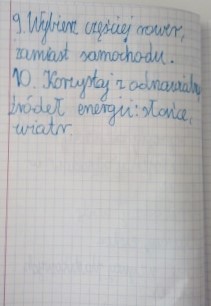 9. Wybierz częściej rower,
zamiast samochodu.
10. Korzystaj z odnawialny
źródeł energii: słońce,
wiatr.